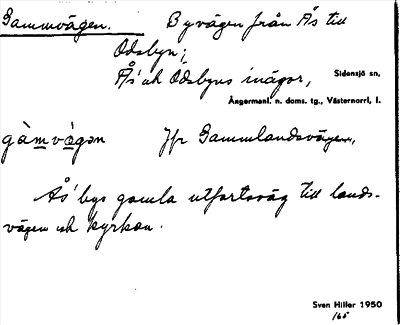 Gammvägen. Byvägen från Ås till
Ödsbyn;
Ås och Ödsbyns inägor, Sidensjö sn,
Ångermanl. n. doms. tg., Västernorrl, l.
gàmvàgən Jfr Gammlandsvägen,
Ås' bys gamla utfartsväg till lands-
vägen och kyrkan.
Sven Hiller 1950
165